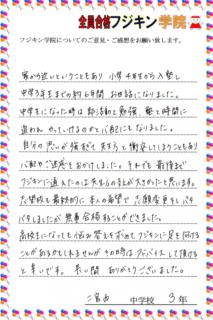 全員合格フジキン学院
フジキン学院についてのご意見・ご感想をお願い致します。
家から近いということもあり 小学4年生から入塾し
中学3年生までの約6年間 お世話になりました。
中学生になった時は部活動と勉強、塾と時間に
追われ やっていけるのかと心配にもなりました。
自分の思いが強すぎて先生と衝突してしまうこともあり
心配やご迷惑をおかけしました。それでも最後まで
フジキンに通えたのは先生方の支えが大きかったと思います。
志望校も最終的に本人の希望で志願変更をしバタ
バタしましたが無事合格することができました。
高校生になっても悩み答えを求めてフジキンに足を向ける
ことがあるかもしれませんがその時はアドバイスして頂ける
と幸いです。長い間 ありがとうございました。
二宮西 中学校 3年